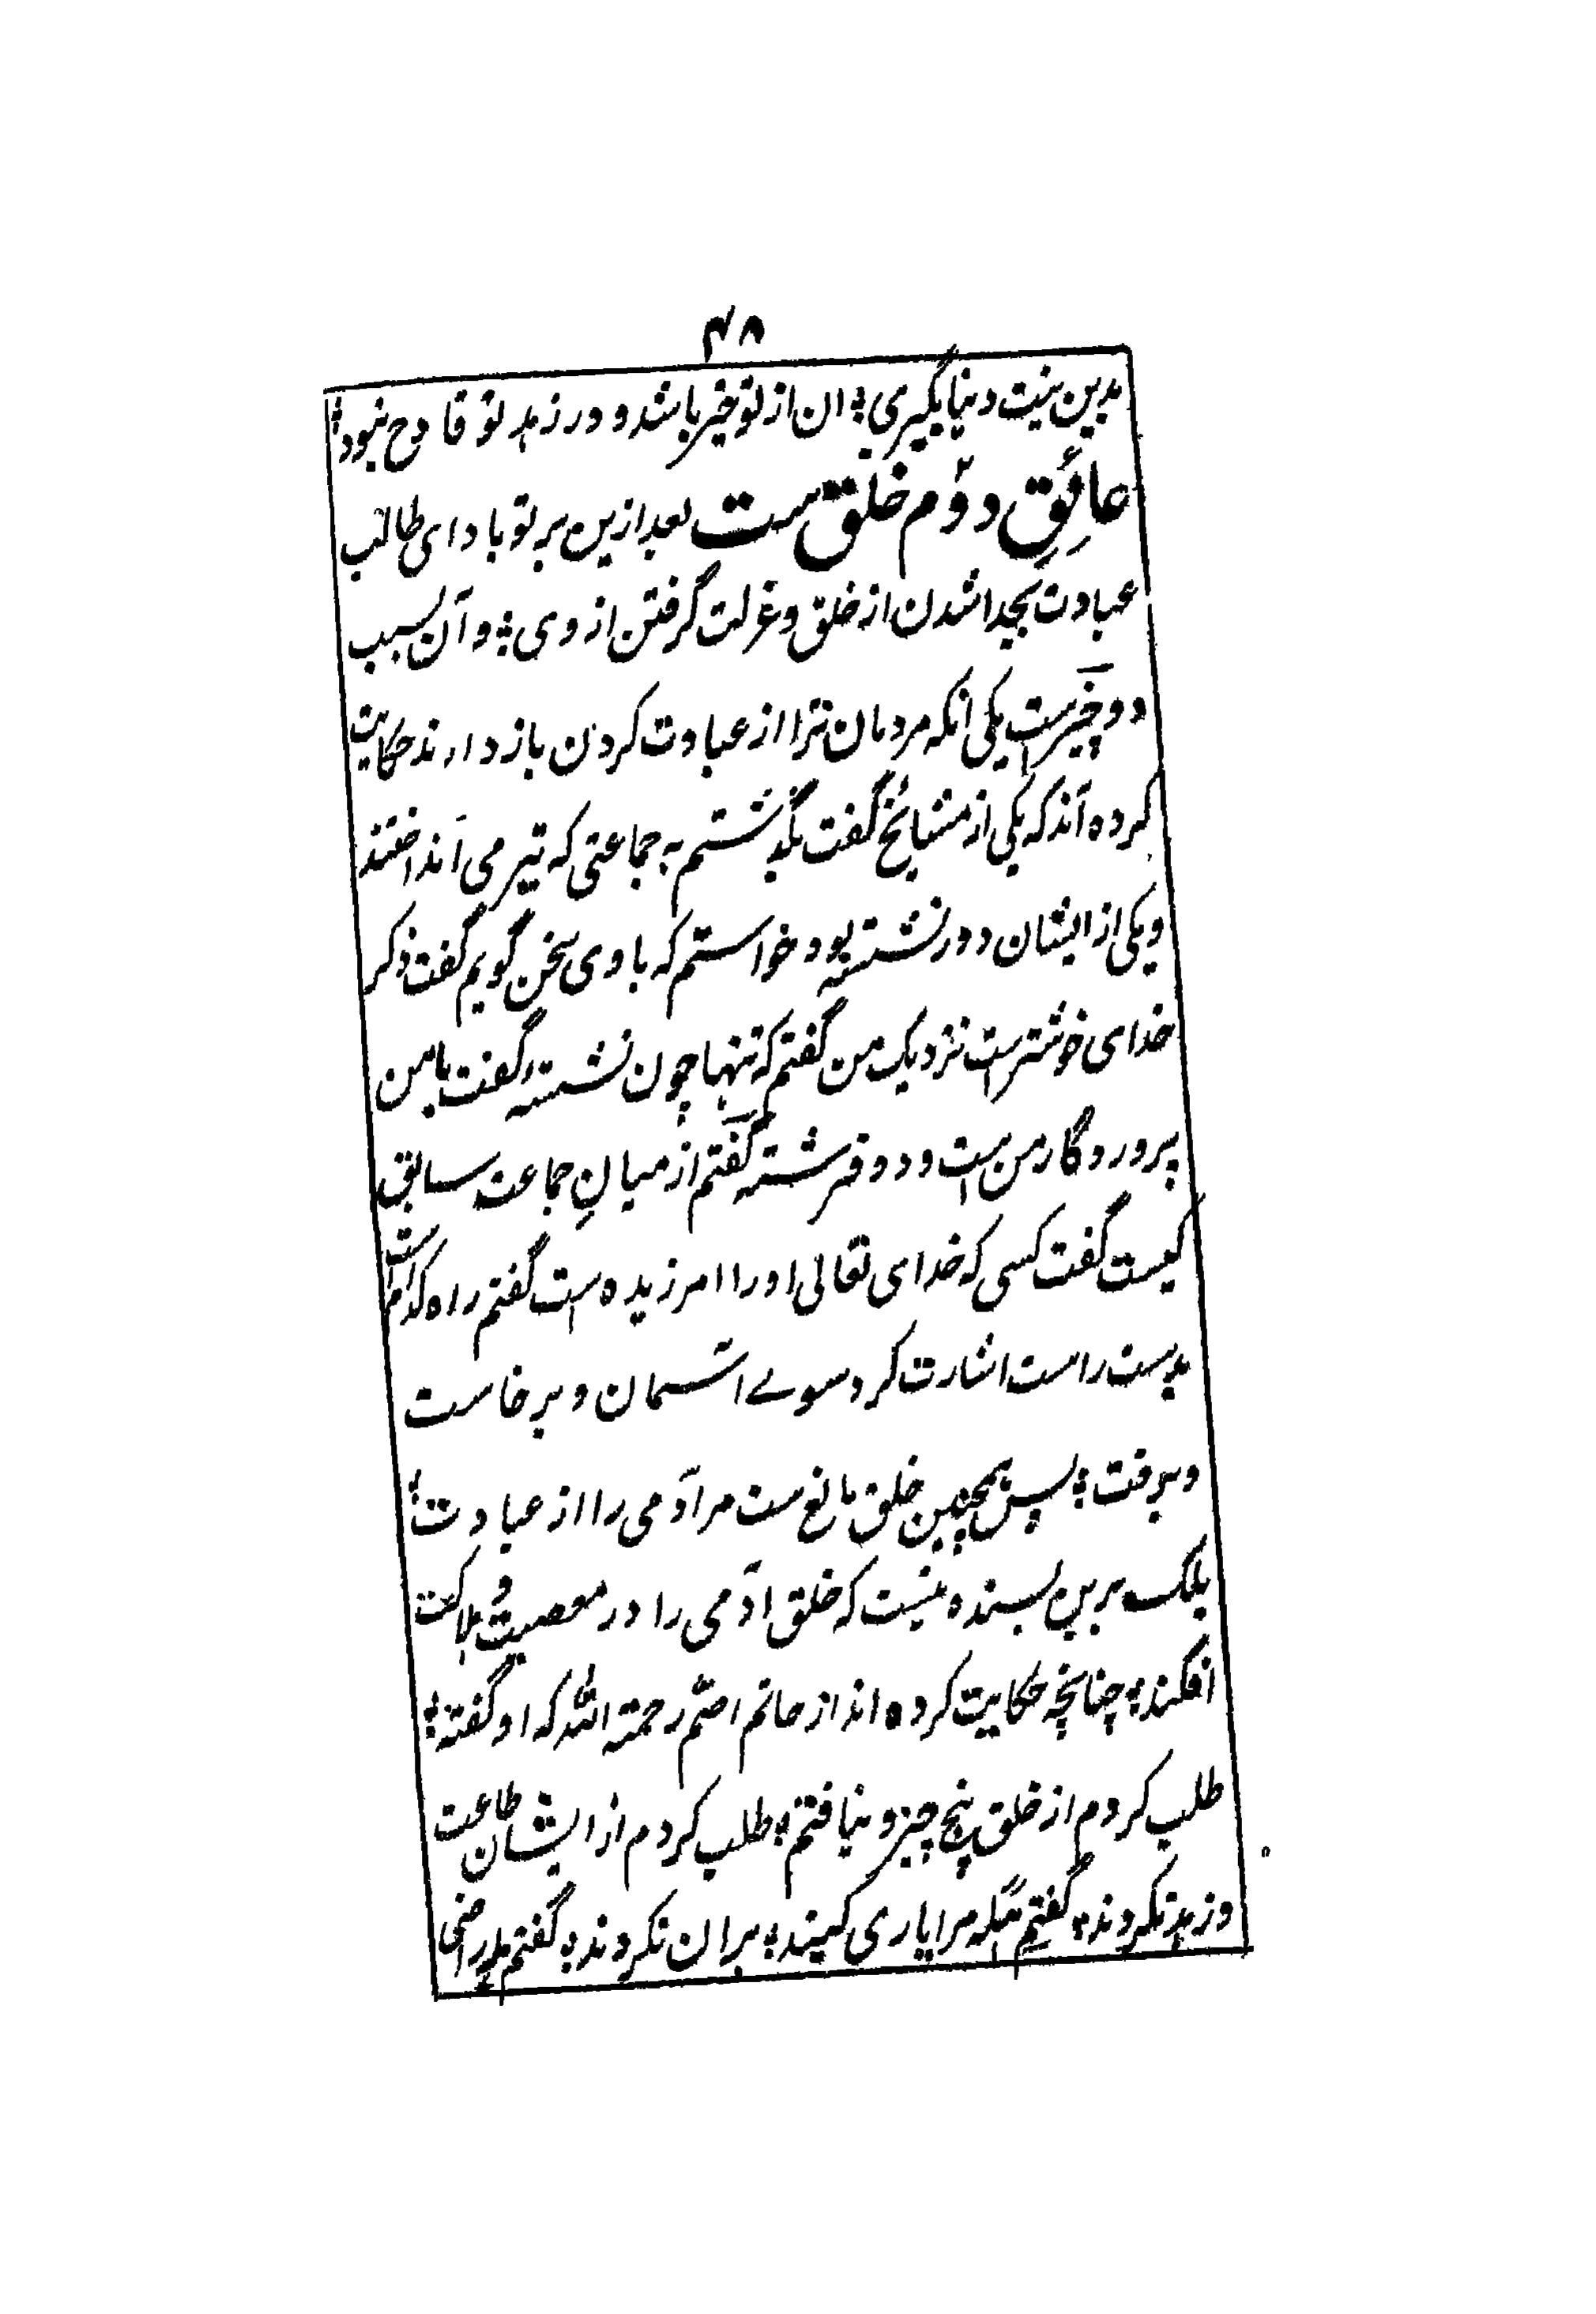 ۴۸
بدین نیت دنیا بگیری ؛ ان از تو خیر باشد و در زهد تو قادح نبود ؛
عائقِ دوّم خلق ست بعد ازین بر تو باد ای طالب
عبادت بجدا شدن از خلق و عزلت گرفتن از وی ؛ و آن بسبب
دو چیزست یکی انکه مردمان ترا از عبادت کردن باز دارند حکایت
کرده اند که یکی از مشایخ گفت بگذشتم به جماعتی که تیر می انداختند
و یکی از ایشان دور نشسته بود خواستم که با وی سخن گویم گفت ذکر
خدای خوشترست نزدیک من گفتم که تنها چون نشستهٔ گفت با من
پروردگار من ست و دو فرشته گفتم از میانِ جماعت سابق
کیست گفت کسی که خدای تعالی او را امرزیده است گفتم راه کدام ست
بدست راست اشارت کرد سوے اسمان و برخاست
و برفت ؛ پس همچنین خلق مانع ست مر آدمی را از عبادت ؛
بلکه برین بسنده نیست که خلق آدمی را در معصیت و هلاکت
افکند ؛ چنانچه حکایت کرده اند از حاتم اصمّ رحمة الله که او گفته ؛
طلب کردم از خلق پنج چیز و نیافتم ؛ طلب کردم از ایشان طاعت
و زهد نکردند ؛ گفتم انگه مرا یاری کنید ؛ بران نکردند ؛ گفتم بدو راضی